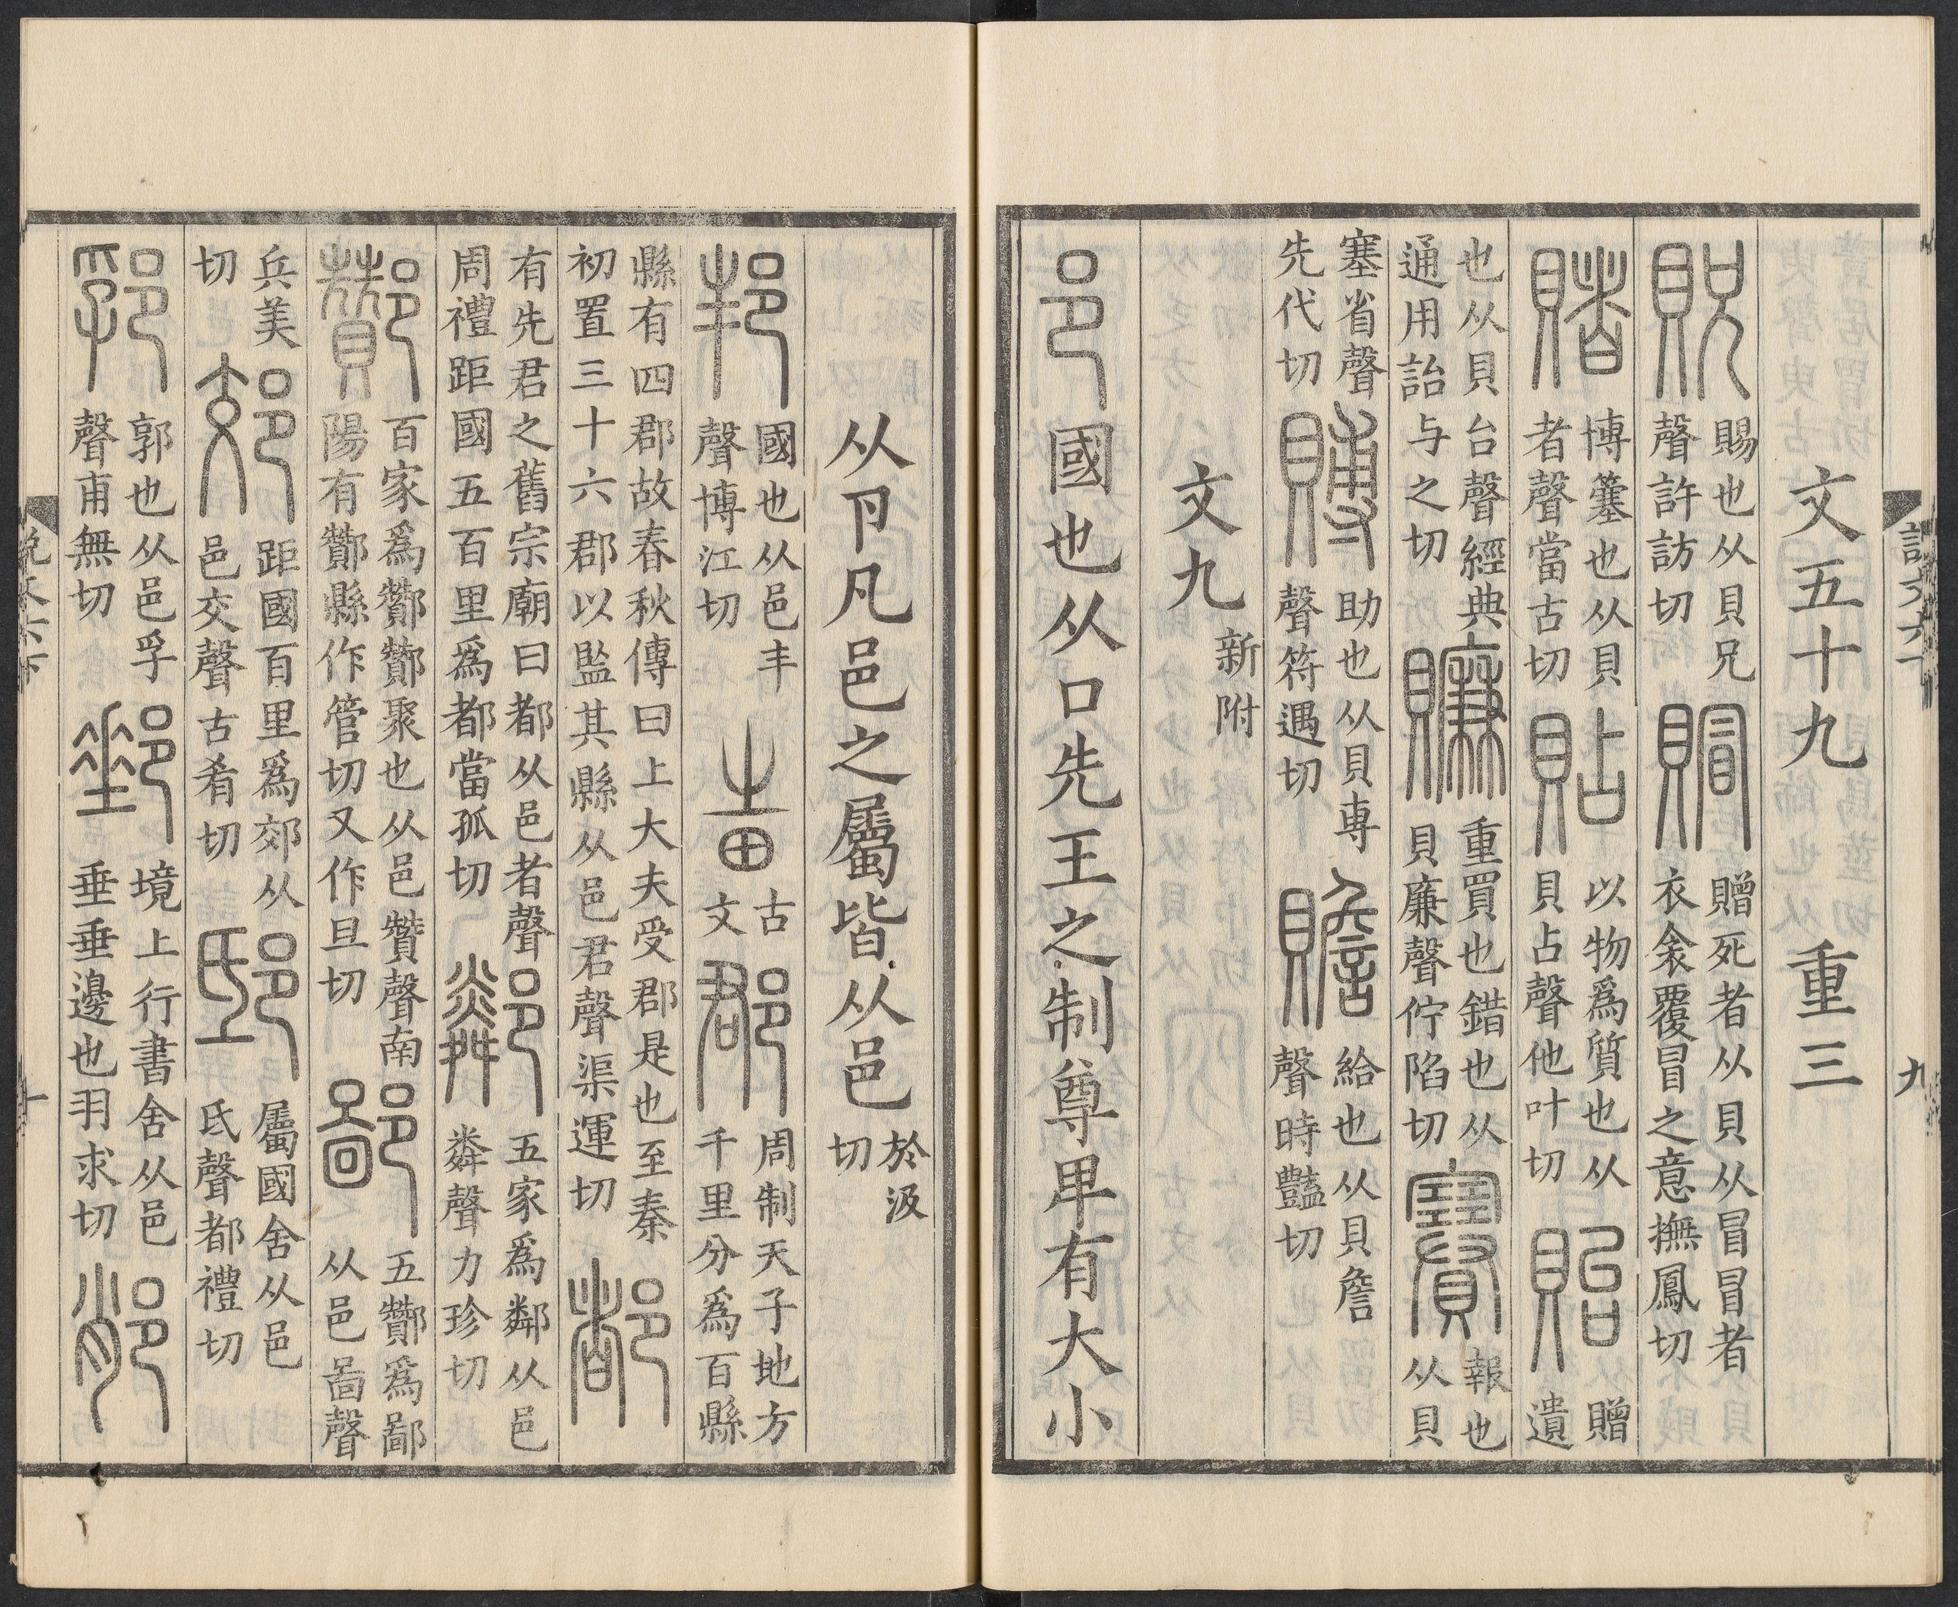 說文六下 九
文五十九 重三
貺 賜也从貝兄聲許訪切 賵 贈死者从貝从冒冒者衣衾覆冒之意撫鳳切
賭 博簺也从貝者聲當古切 貼 以物爲質也从貝占聲他叶切 貽 贈遺
也从貝台聲經典通用詒与之切 賺 重買也錯也从貝廉聲佇陷切 賽 報也从貝
塞省聲先代切 賻 助也从貝専聲符遇切 贍 給也从貝詹聲時豔切
文九 新附
邑 國也从口先王之制尊卑有大小
从卪凡邑之屬皆从邑 於汲切
邦 國也从邑丰聲博江切 𤰫 古文 郡 周制天子地方千里分爲百縣
縣有四郡故春秋傳曰上大夫受郡是也至秦初置三十六郡以監其縣从邑君聲渠運切 都
有先君之舊宗廟曰都从邑者聲周禮距國五百里爲都當孤切 鄰 五家爲鄰从邑粦聲力珍切
酇 百家爲酇酇聚也从邑贊聲南陽有酇縣作管切又作旦切 鄙 五酇爲鄙从邑啚聲
兵美切 郊 距國百里爲郊从邑交聲古肴切 邸 屬國舍从邑氐聲都禮切
郛 郭也从邑孚聲甫無切 郵 境上行書舍从邑垂垂邊也羽求切 𨛍
說文六下 十